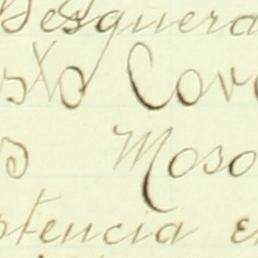 Desquera
sto Cov
s Moso
ptencia e